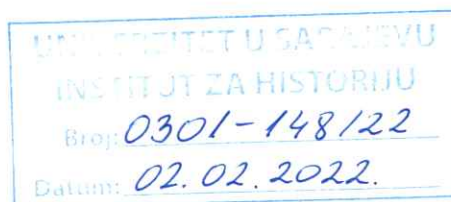 UNIVERZITET U SARAJEVU
INSTITUT ZA HISTORIJU
Broj: 0301-148/22
Datum: 02.02.2022.